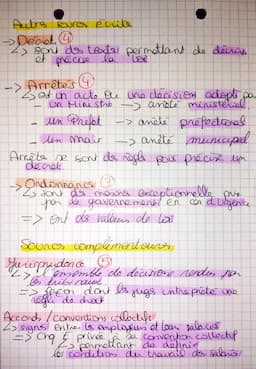 Autres sources écrites
-> Décret (4)
↳ sont des textes permettant de
et précise la loi
-> Arrêtés (4)
↳ est un acte ou une décision adopté par
- un Ministre -> arrêté ministériel
- un Préfet -> arrêté préfectoral
- un maire -> arrêté municipal
Arrêté se sont des règles pour précise un
décret
-> Ordonnances (3)
↳ sont des mesures exceptionnelle prise
par le gouvernement en cas d'urgence
=> ont des valeurs de loi
Sources complémentaires
Jurisprudence (5)
↳ l'ensemble de décisions rendus par
les tribunaux
=> façon dont les juges interprète une
règle de droit
Accords / conventions collectifs
↳ signés entre les employeurs et leur salariés
=> Chq E privée a sa convention collectif
-> permettant de définir
les condition du travail des salariés